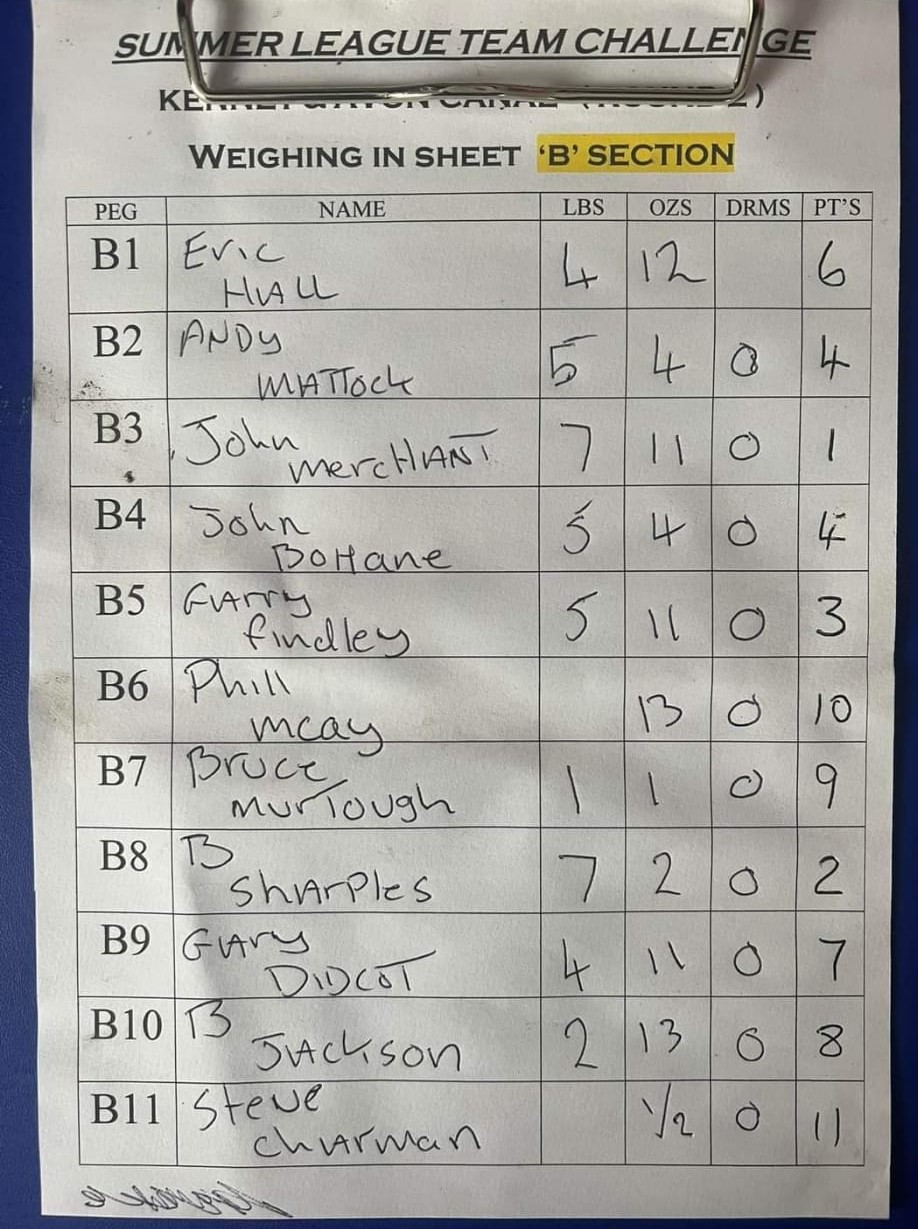 SUMMER LEAGUE TEAM CHALLENGE
KENNET & AVON CANAL (ROUND 2)
WEIGHING IN SHEET 'B' SECTION
PEG NAME LBS OZS DRMS PT'S
B1 Eric HALL 4 12 6
B2 ANDY MATTOCK 5 4 0 4
B3 John mercHANT 7 11 0 1
B4 John BOHane 5 4 0 4
B5 GArry findley 5 11 0 3
B6 Phill mcay 13 0 10
B7 Bruce MurTough 1 1 0 9
B8 B ShArPles 7 2 0 2
B9 GAry DIDCOT 4 11 0 7
B10 B JAckson 2 13 0 8
B11 Steve chArman 1/2 0 11